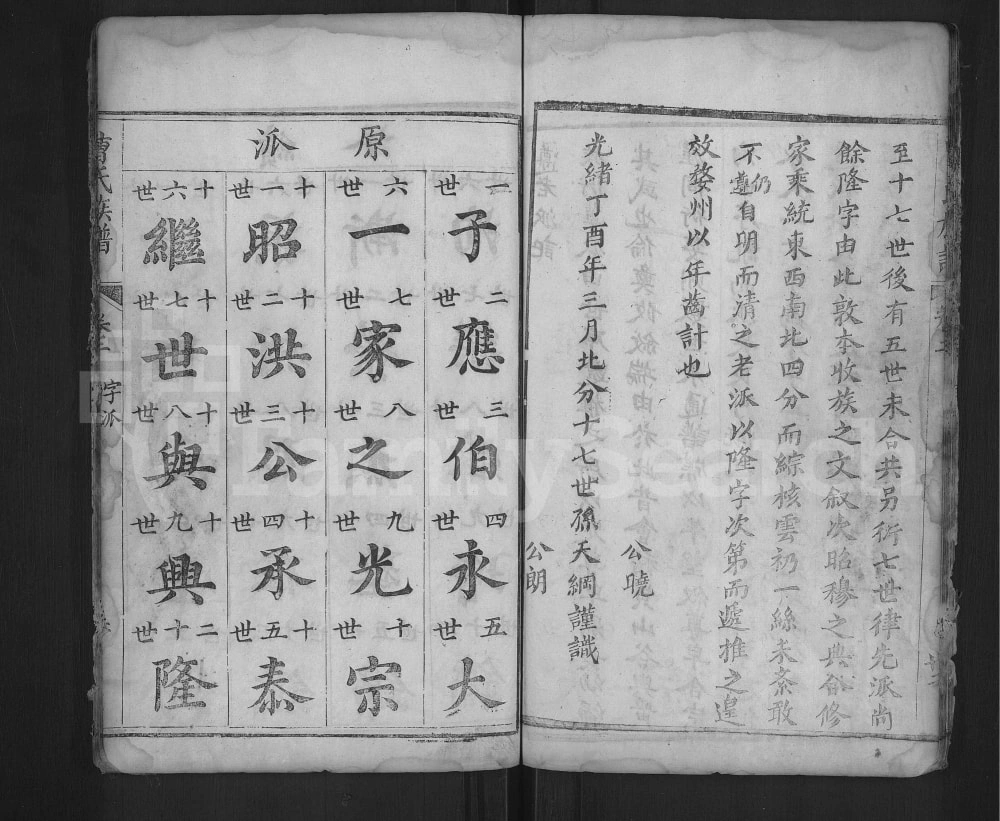 至十七世後有五世未合共另衍七世律先派尚
餘隆字由此敦本收族之文叙次昭穆之典欲修
家乘統東西南北四分而綜核雲礽一絲未紊敢
不仍遵自明而清之老派以隆字次第而遞推之遑
效婺州以年齒計也
公曉
光緒丁酉年三月北分十七世孫天綱謹識
公朗
原派
一世 子
二世 應
三世 伯
四世 永
五世 大
六世 一
七世 家
八世 之
九世 光
十世 宗
十一世 昭
十二世 洪
十三世 公
十四世 承
十五世 泰
十六世 繼
十七世 世
十八世 與
十九世 興
二十世 隆
曹氏族譜
卷
字派
FamilySearch